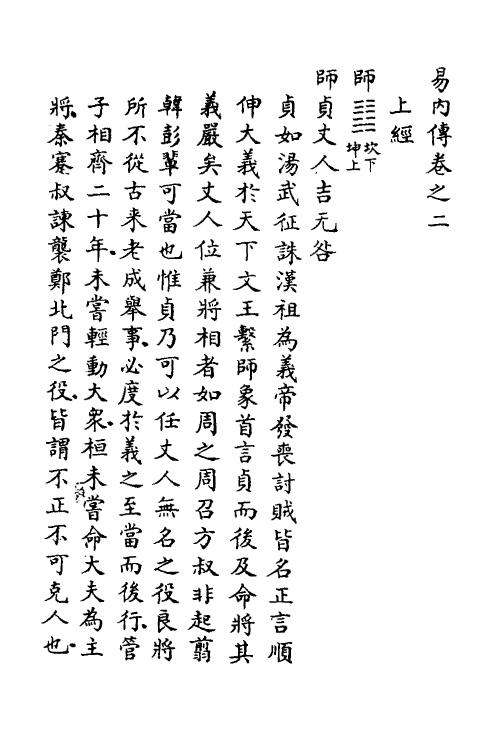 易內傳卷之二
上經
師䷆坎下坤上
師貞丈人吉无咎
貞如湯武征誅漢祖為義帝發喪討賊皆名正言順
伸大義於天下文王繫師彖首言貞而後及命將其
義嚴矣丈人位兼將相者如周之周召方叔非起翦
韓彭輩可當也惟貞乃可以任丈人無名之役良將
所不從古来老成舉事必度於義之至當而後行管
子相齊二十年未嘗輕動大衆桓未嘗命大夫為主
將秦蹇叔諫襲鄭北門之役皆謂不正不可克人也